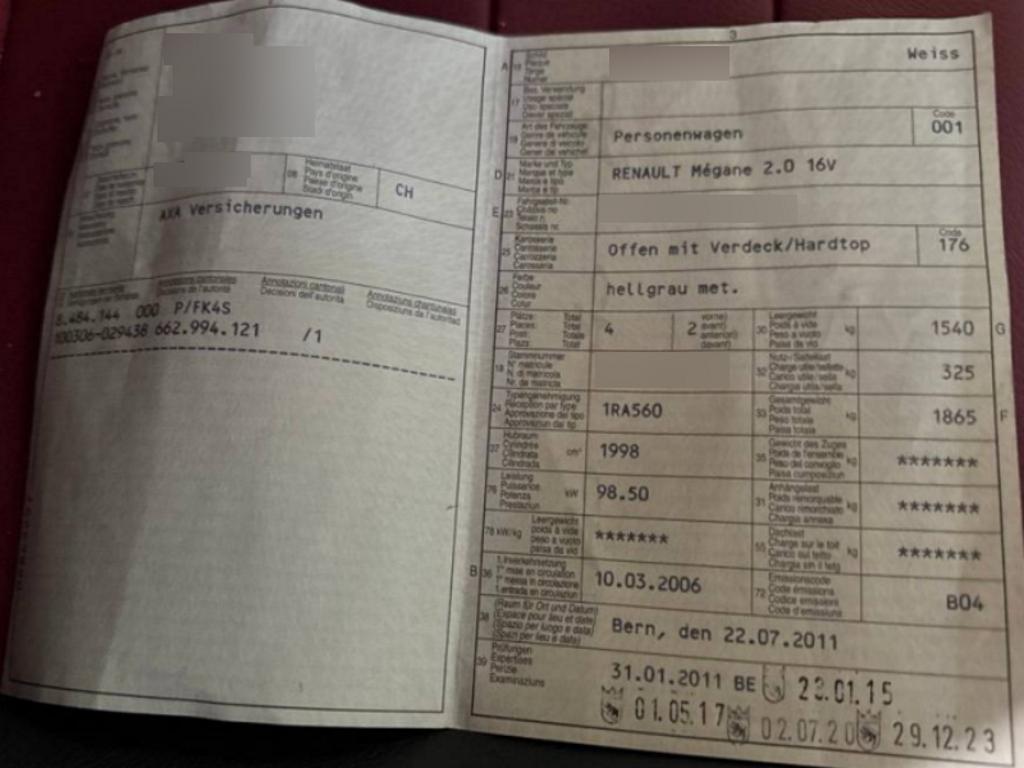 08 Heimatstaat
Pays d'origine
CH
AXA Versicherungen
Annotazioni cantonali
Decisioni dell'autorità
8.484.144 000 P/FK4S
100306-029438 662.994.121 /1
3
A 15 Schild
Plaque
Targa
Numer
Weiss
17 Bes. Verwendung
Usage spécial
Uso speciale
Diever spezial
19 Art des Fahrzeuges
Genre de véhicule
Genere di veicolo
Gener dal vehichel
Personenwagen
Code
001
D 21 Marke und Typ
Marque et type
Marca e tipo
Marca e tip
RENAULT Mégane 2.0 16V
E 23 Fahrgestell-Nr.
Châssis no
Telaio n.
Schassis nr.
25 Karosserie
Carrosserie
Carrozzeria
Carossaria
Offen mit Verdeck/Hardtop
Code
176
26 Farbe
Couleur
Colore
Colur
hellgrau met.
27 Plätze: Total
Places: Total
Posti: Totale
Plazs: Total
4
2
vorne)
avant)
anteriori)
davant)
30 Leergewicht
Poids à vide
Peso a vuoto
Paisa da vid
kg
1540
G
18 Stammnummer
N° matricule
N. di matricola
Nr. da matricla
32 Nutz-/Sattellast
Charge utile/sellette
Carico utile/sella
Chargia utila/sella
kg
325
24 Typengenehmigung
Réception par type
Approvazione del tipo
Approvaziun dal tip
1RA560
33 Gesamtgewicht
Poids total
Peso totale
Paisa totala
kg
1865
F
37 Hubraum
Cylindrée
Cilindrata
Cilindrada
cm³
1998
35 Gewicht des Zuges
Poids de l'ensemble
Peso del convoglio
Paisa cumposiziun
kg
*******
76 Leistung
Puissance
Potenza
Prestaziun
kW
98.50
31 Anhängelast
Poids remorquable
Carico rimorchiato
Chargia annexa
kg
*******
78 kW/kg
Leergewicht
poids à vide
peso a vuoto
paisa da vid
*******
55 Dachlast
Charge sur le toit
Carico sul tetto
Chargia sin il tetg
kg
*******
B 36 1. Inverkehrsetzung
1re mise en circulation
1a messa in circolazione
1. entrada en circulaziun
10.03.2006
72 Emissionscode
Code émissions
Codice emissioni
Code d'emissiuns
B04
38 (Raum für Ort und Datum)
(Espace pour lieu et date)
(Spazio per luogo e data)
(Spazi per lieu e data)
Bern, den 22.07.2011
39 Prüfungen
Expertises
Perizie
Examinaziuns
31.01.2011 BE 23.01.15
01.05.17 02.07.20 29.12.23